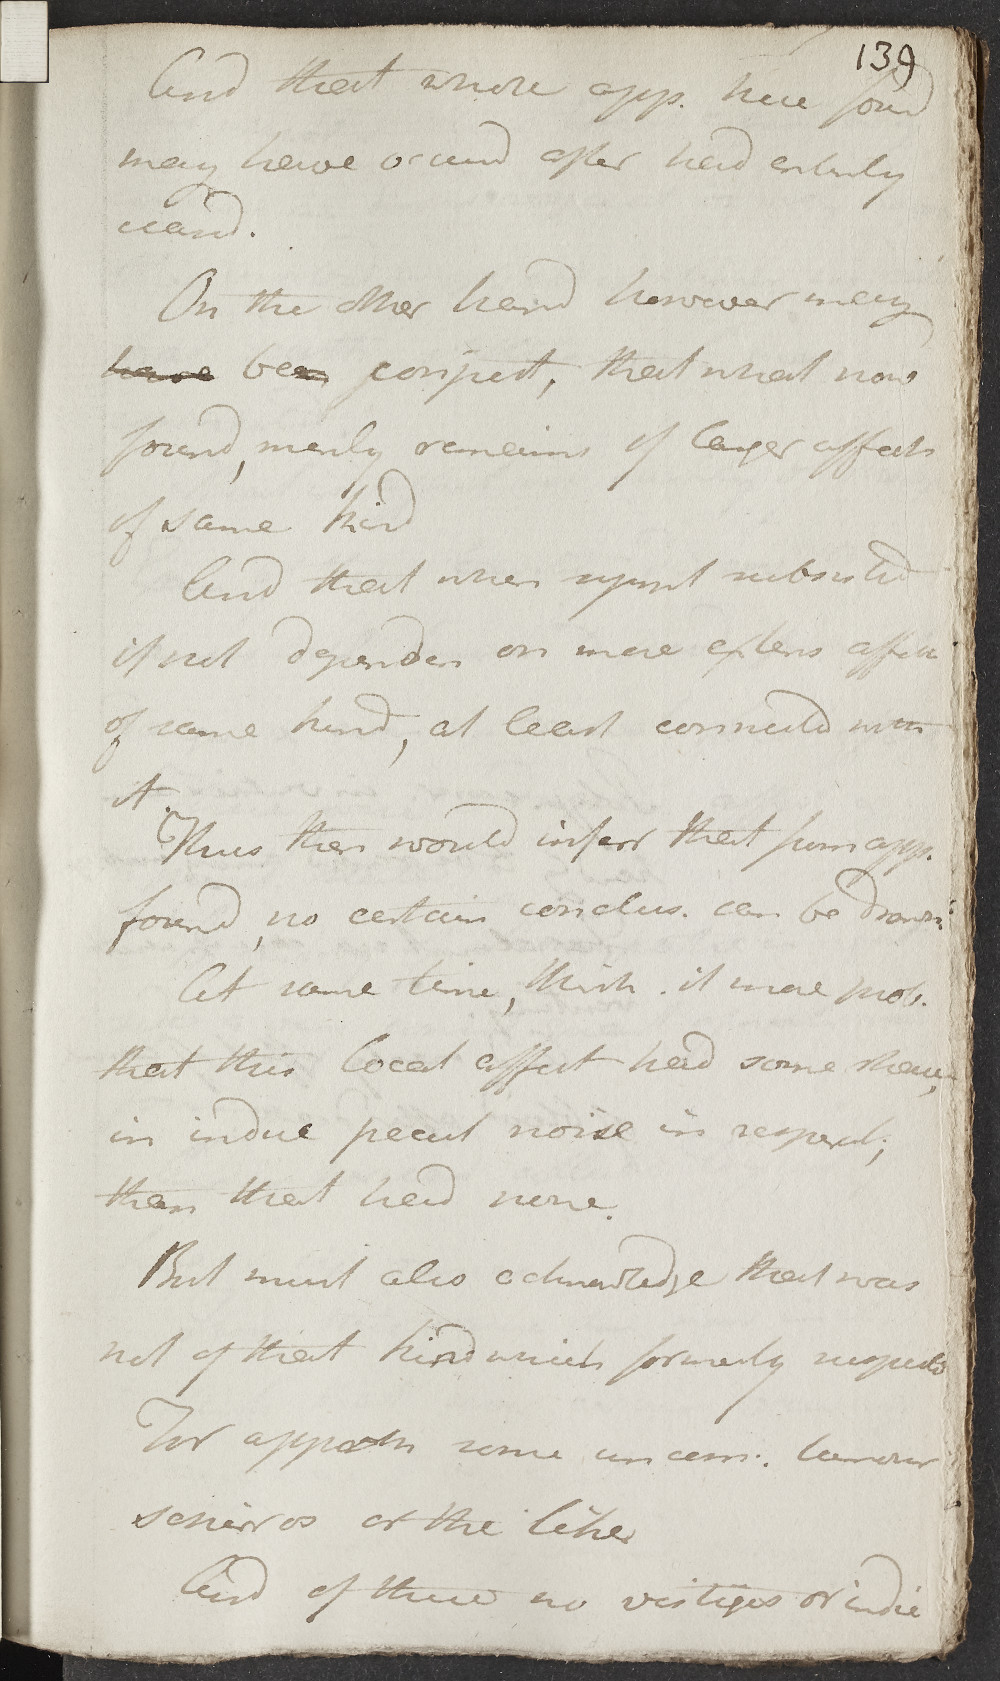 139
And that whole app. here found
may have occurred after had entirely
ceasd.
On the other hand however may
have been conject, that what now
found, merely remains of larger affects
of same kind
And that when sympt subsisted
if not dependen on more extens affectn
of same kind, at least connected with
it.
Thus then would inferr that from app.
found, no certain conclus. can be drawn
At same time, think it more prob.
that this local affect had some share,
in induc pecul noise in respirat,
than that had none.
But must also acknowledge that was
not of that kind which formerly suspected
For apprehn some uncom. tumour
schirros or the like
And of these no vestiges or indic